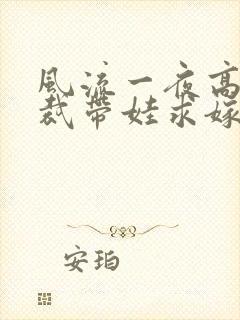 风流一夜高
裁带娃求嫁
安珀